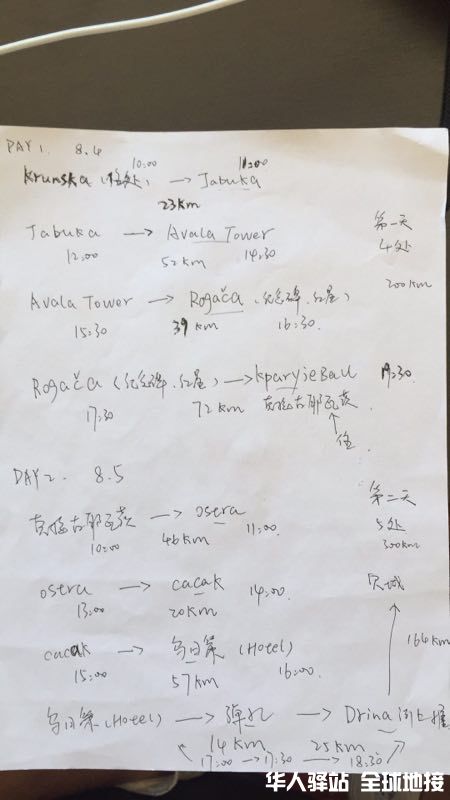 DAY 1. 8.4
10:00 11:00
Krunska (住处) → Jabuka
23KM
Jabuka → Avala Tower
12:00 52KM 14:30
第一天
4处
200KM
Avala Tower → Rogača (纪念碑、红星)
15:30 39KM 16:30.
Rogača (纪念碑、红星) → kparyjeBau 19:30
17:30 72KM 克拉古耶瓦茨
↑
住
DAY 2. 8.5
克拉古耶瓦茨 → ostra
10:00 46KM 11:00
第二天
5处
300KM
ostra → cacak 14:00
13:00 20KM
cacak → 乌日策 (Hotel)
15:00 57KM 16:00
164KM
乌日策 (Hotel) → 弹孔 → Drina
14KM 25KM
17:00 → 17:30 → 18:30
华人驿站 全球地接